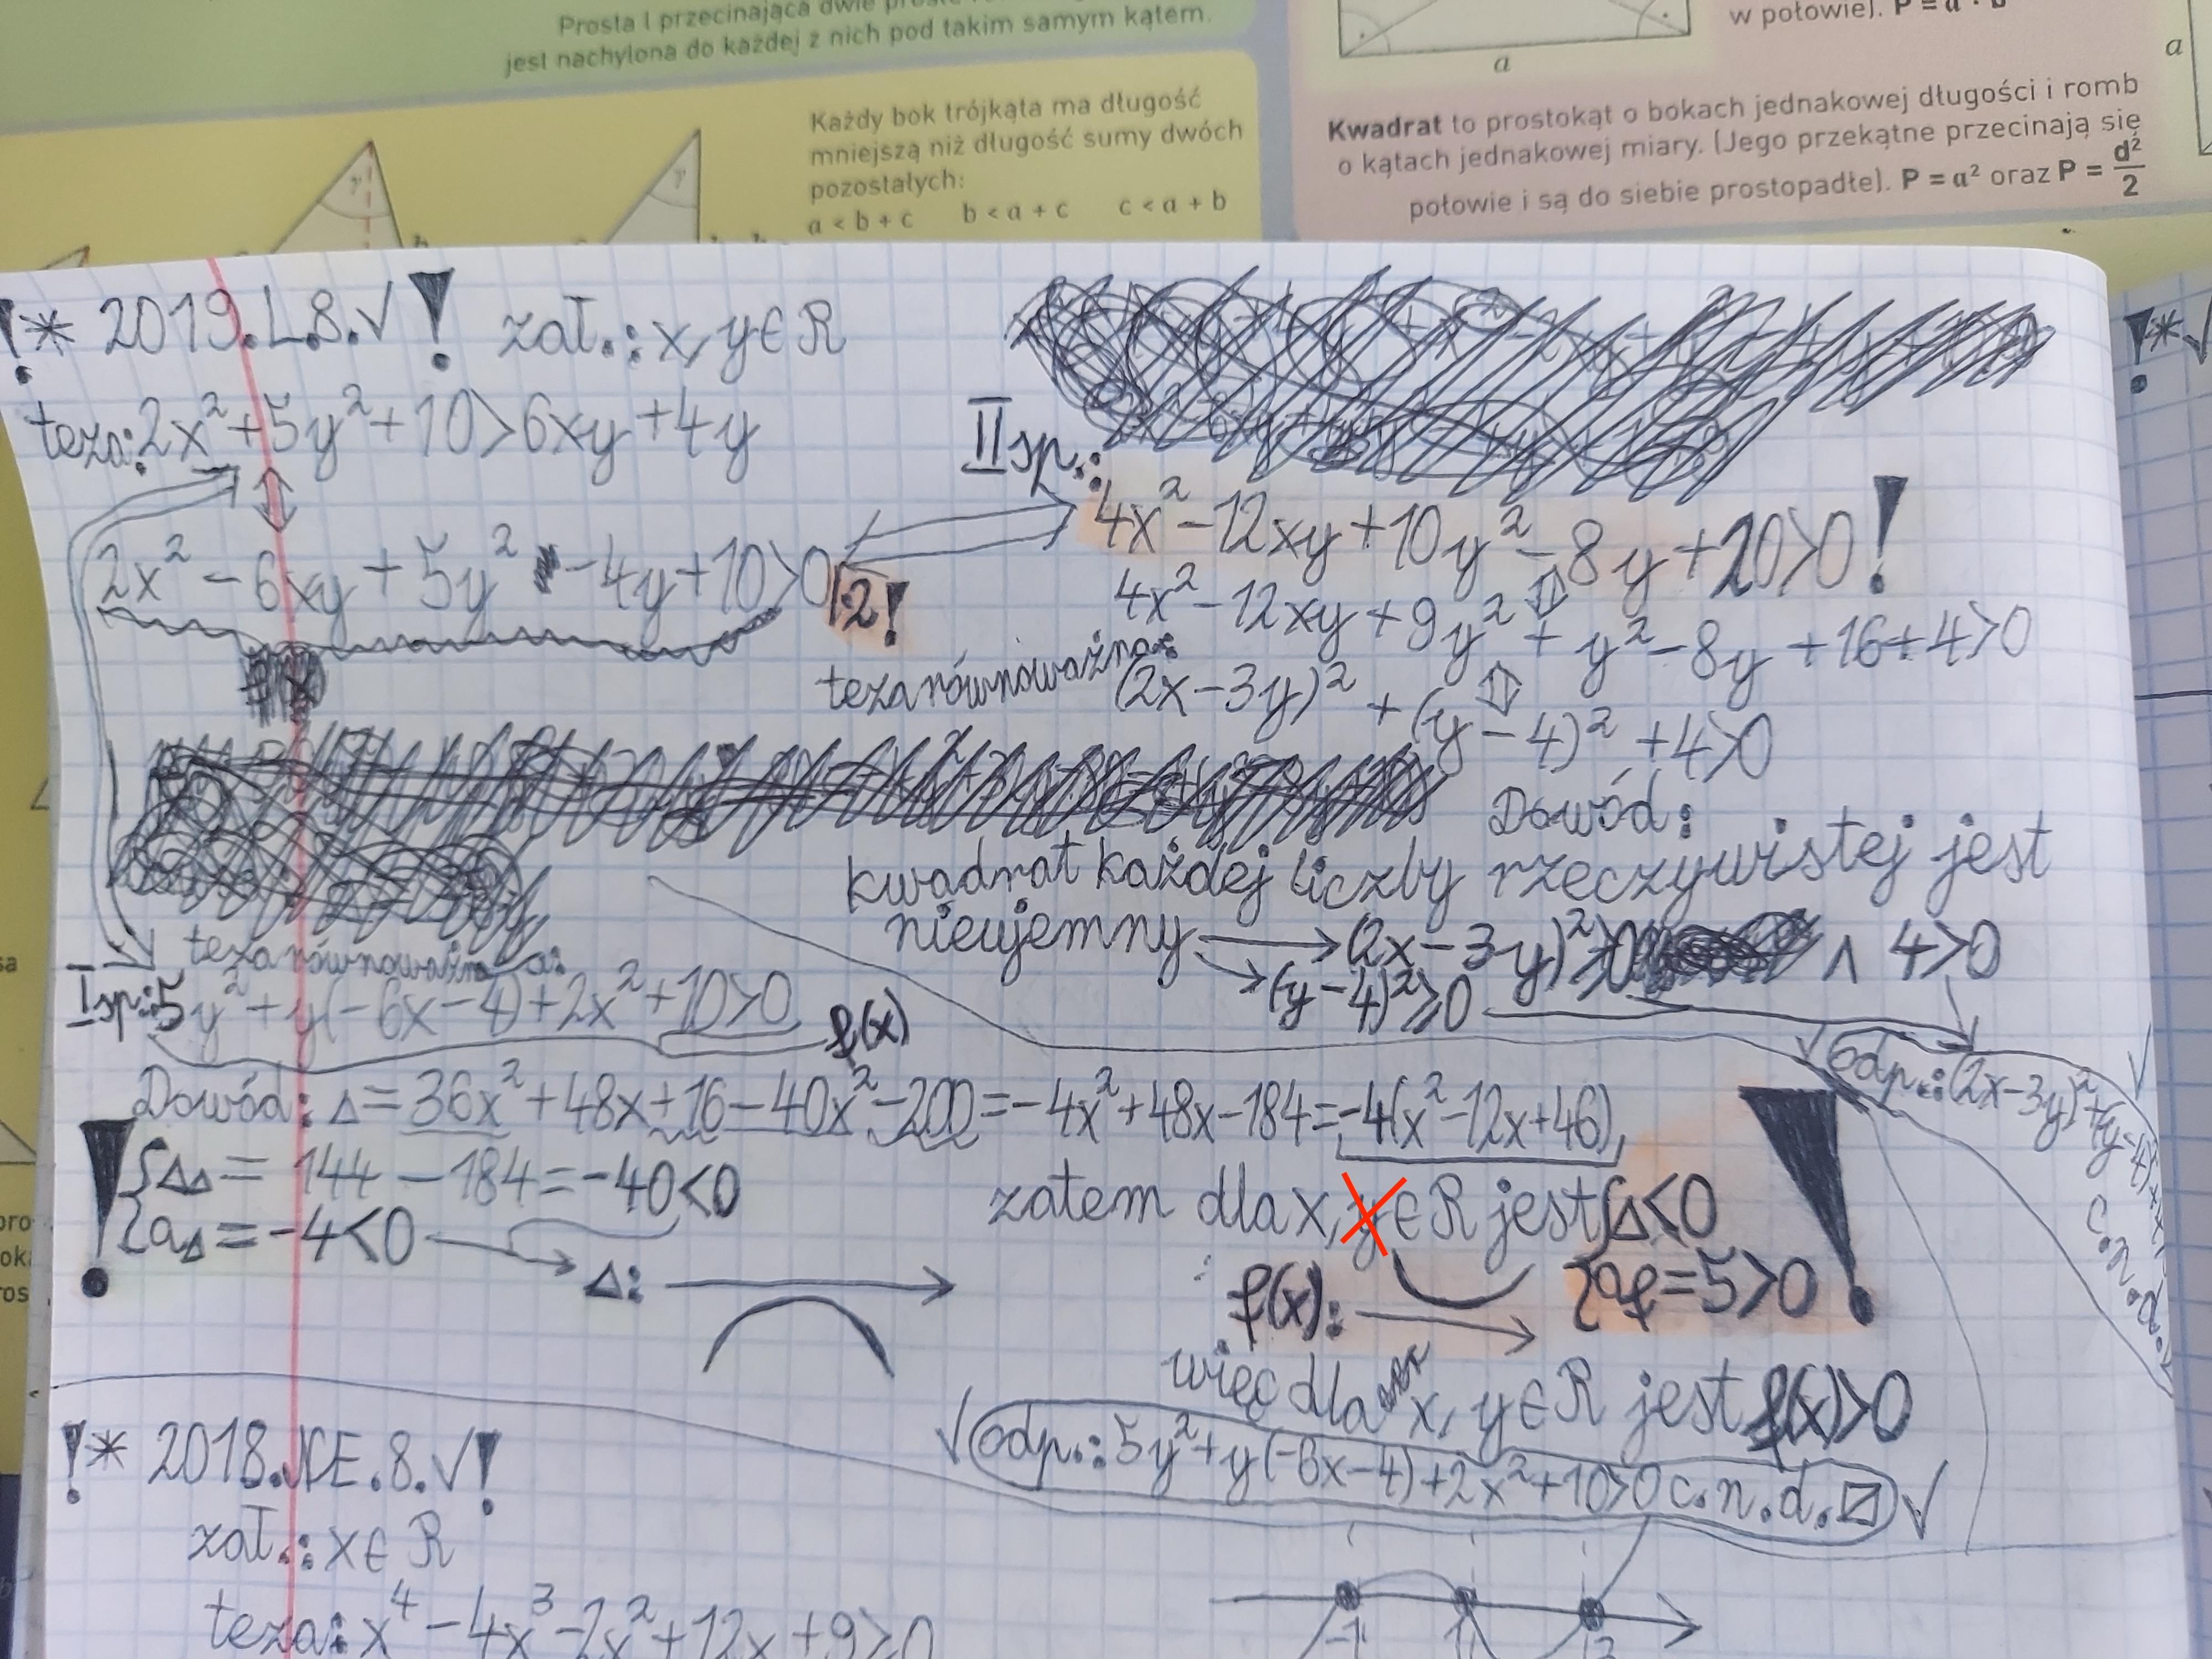 Prosta l przecinająca dwie
jest nachylona do każdej z nich pod takim samym kątem.
Każdy bok trójkąta ma długość
mniejszą niż długość sumy dwóch
pozostałych:
a < b + c b < a + c c < a + b
γ γ
w połowie). P = a · b
a
a
Kwadrat to prostokąt o bokach jednakowej długości i romb
o kątach jednakowej miary. (Jego przekątne przecinają się
połowie i są do siebie prostopadłe). P = a² oraz P = d²/2
!* 2019.L.8.√! zał.: x, y∈R
teza: 2x²+5y²+10>6xy+4y
⇕
2x²-6xy+5y²-4y+10>0 |·2!
II sp.:
4x²-12xy+10y²-8y+20>0!
⇕
4x²-12xy+9y²+y²-8y+16+4>0
⇕
teza równoważna: (2x-3y)²+(y-4)²+4>0
Dowód:
kwadrat każdej liczby rzeczywistej jest
nieujemny → (2x-3y)²≥0 ∧ 4>0
→ (y-4)²≥0
√ odp.: (2x-3y)²+(y-4)²+4>0
c.n.d.
√
teza równoważna:
I sp.: 5y²+y(-6x-4)+2x²+10>0
f(x)
Dowód: Δ=36x²+48x+16-40x²-200=-4x²+48x-184=-4(x²-12x+46)
! {Δ_Δ=144-184=-40<0
{a_Δ=-4<0 → Δ:
zatem dla x, y∈R jest {Δ<0
f(x): {a_f=5>0 !
więc dla x, y∈R jest f(x)>0
√ odp.: 5y²+y(-6x-4)+2x²+10>0 c.n.d. √
!* 2018.NE.8.√!
zał.: x∈R
teza: x⁴-4x³-2x²+12x+9≥0
-1 1 3
!*√